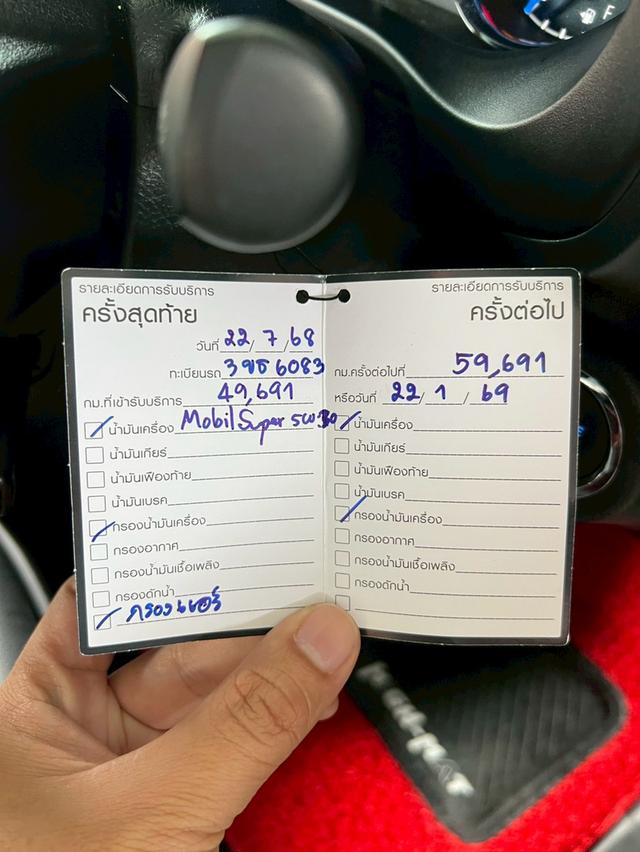 F
รายละเอียดการรับบริการ
ครั้งสุดท้าย
วันที่ 22/ 7 /68
ทะเบียนรถ 6083
กม.ที่เข้ารับบริการ 49,691
น้ำมันเครื่อง Mobil Super 5W30
น้ำมันเกียร์
น้ำมันเฟืองท้าย
น้ำมันเบรค
กรองน้ำมันเครื่อง
กรองอากาศ
กรองน้ำมันเชื้อเพลิง
กรองดักน้ำ
กรองแอร์
รายละเอียดการรับบริการ
ครั้งต่อไป
กม.ครั้งต่อไปที่ 59,691
หรือวันที่ 22/ 1 / 69
น้ำมันเครื่อง
น้ำมันเกียร์
น้ำมันเฟืองท้าย
น้ำมันเบรค
กรองน้ำมันเครื่อง
กรองอากาศ
กรองน้ำมันเชื้อเพลิง
กรองดักน้ำ